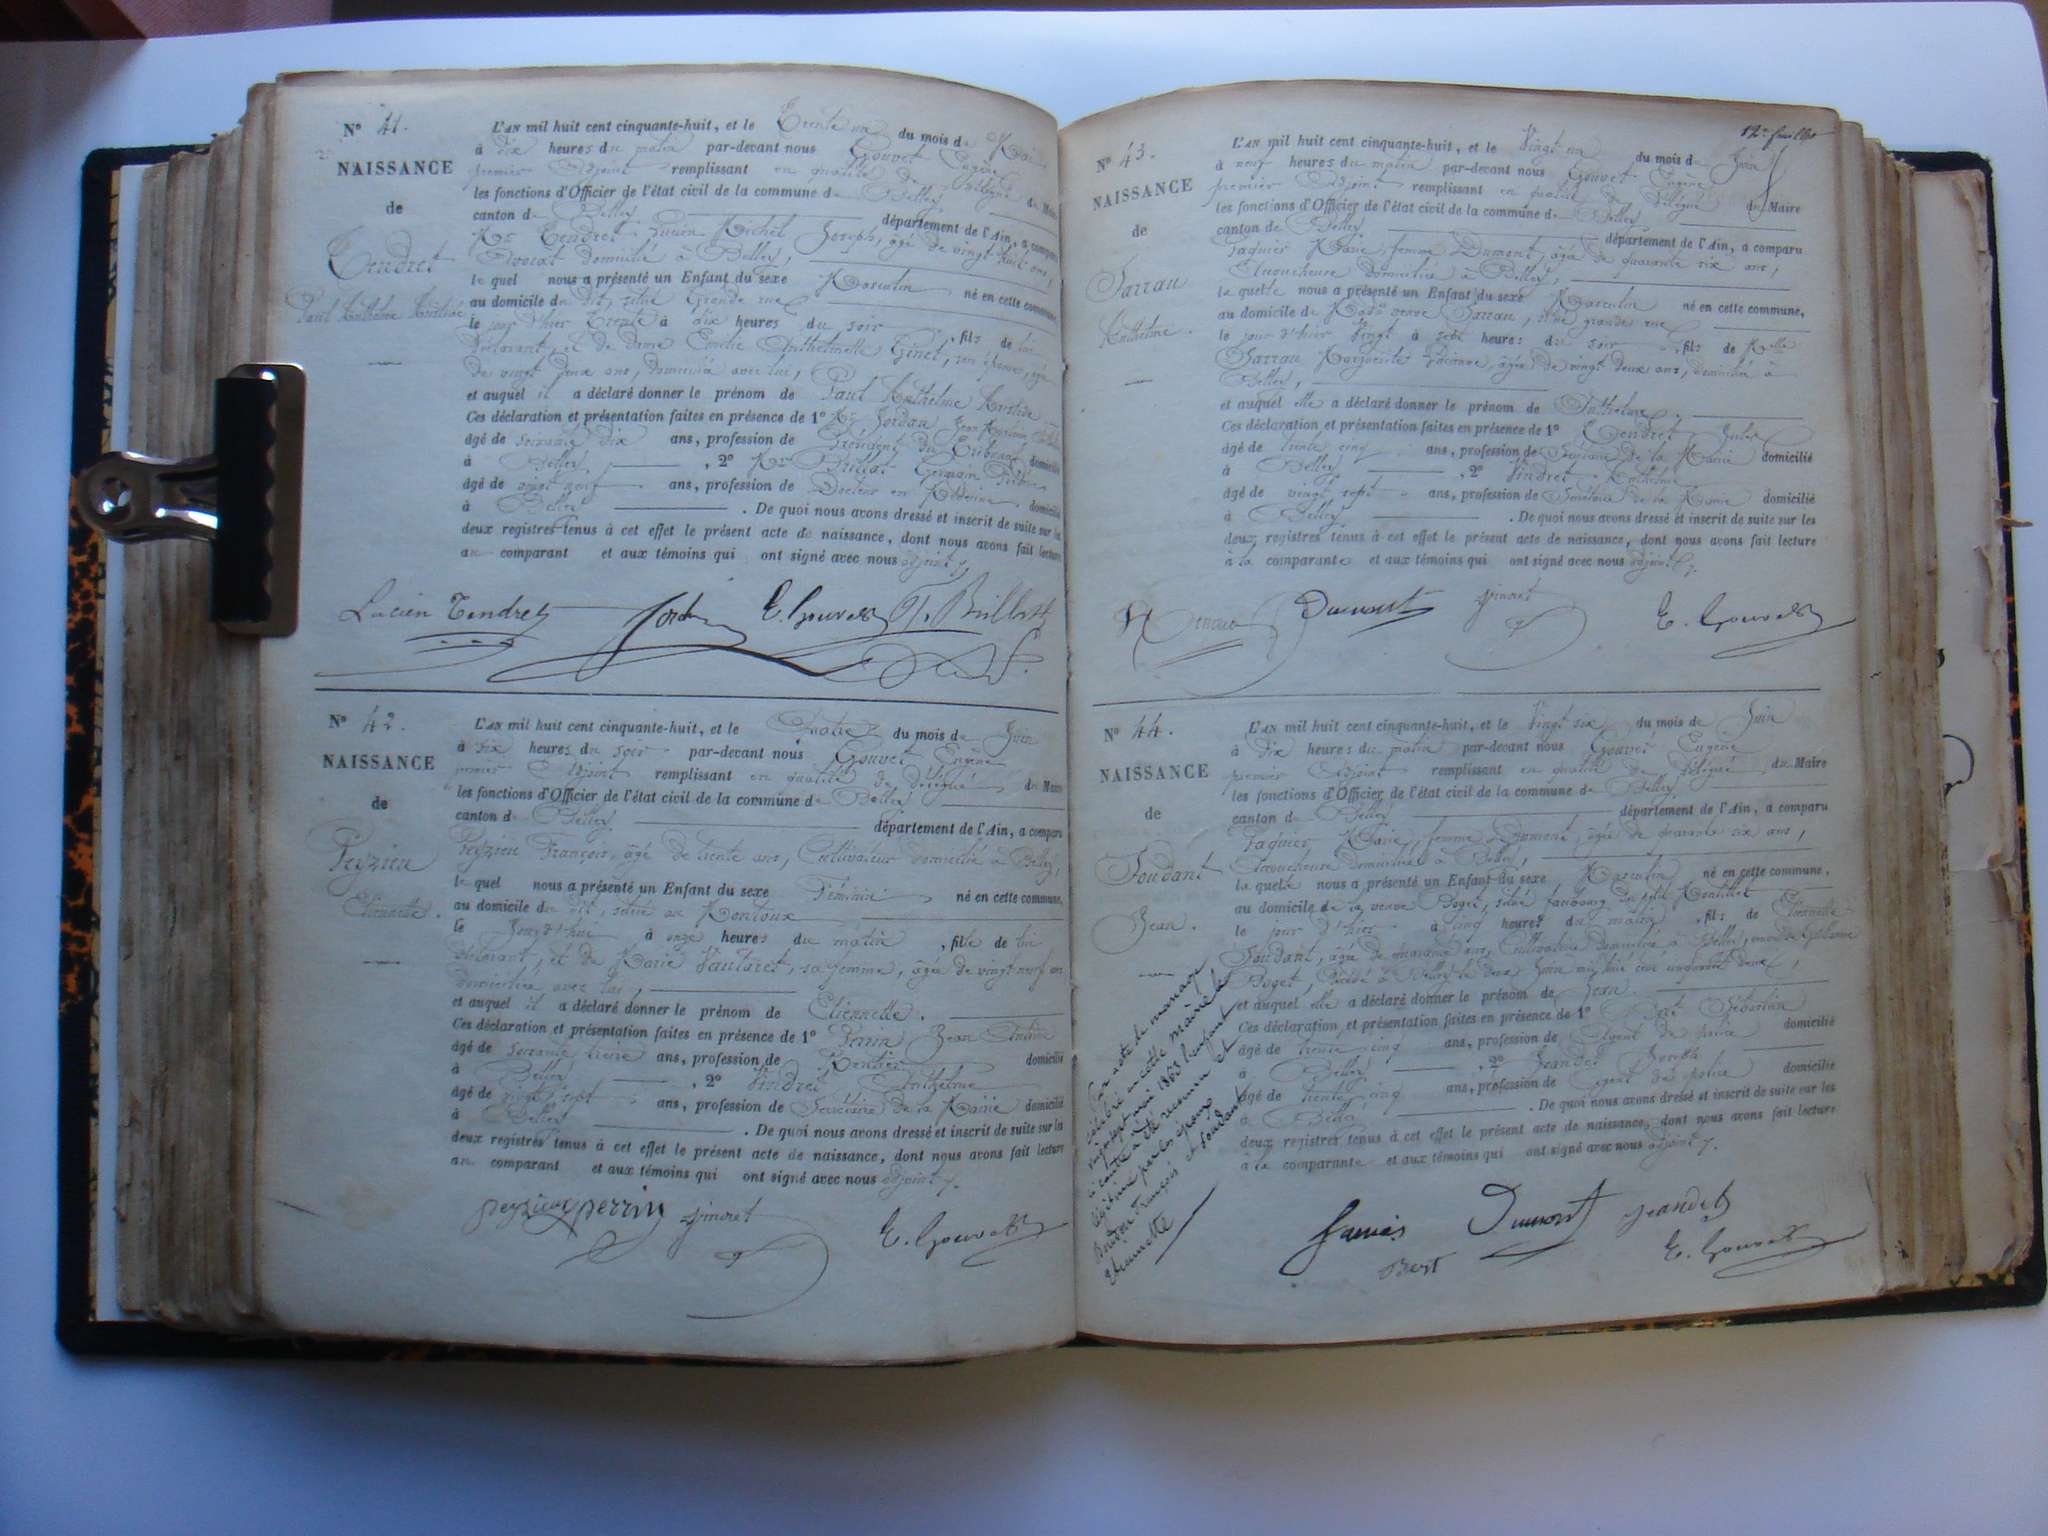 Nº 41.
NAISSANCE
de
Tendret
Paul Anthelme Aristide
L'AN mil huit cent cinquante-huit, et le Trente un du mois de Mai
à dix heures du matin par-devant nous Gouvet Eugène
premier Adjoint remplissant en qualité de délégué du Maire
les fonctions d'Officier de l'état civil de la commune de Belley
canton de Belley département de l'Ain, a comparu
Mr Tendret Lucien Michel Joseph, âgé de vingt huit ans,
Avocat domicilié à Belley,
lequel nous a présenté un Enfant du sexe Masculin né en cette commune
au domicile du dit, situé Grande rue
le jour d'hier Trente à dix heures du soir, fils de lui
déclarant, et de dame Emilie Anthelmette Ginet, son épouse, âgée
de vingt deux ans, domiciliée avec lui,
et auquel il a déclaré donner le prénom de Paul Anthelme Aristide
Ces déclaration et présentation faites en présence de 1º Mr Jordan Jean
âgé de soixante dix ans, profession de Président du Tribunal domicilié
à Belley, 2º Mr Brillat Germain
âgé de vingt neuf ans, profession de Docteur en Médecine domicilié
à Belley. De quoi nous avons dressé et inscrit de suite sur les
deux registres tenus à cet effet le présent acte de naissance, dont nous avons fait lecture
au comparant et aux témoins qui ont signé avec nous adjoint
Lucien Tendret E. Gouvet Brillat
Nº 42.
NAISSANCE
de
Peyzieu
Etiennette.
L'AN mil huit cent cinquante-huit, et le Quatre du mois de Juin
à six heures du soir par-devant nous Gouvet Eugène
premier Adjoint remplissant en qualité de délégué du Maire
les fonctions d'Officier de l'état civil de la commune de Belley
canton de Belley département de l'Ain, a comparu
Peyzieu François, âgé de trente ans, Cultivateur domicilié à Belley,
lequel nous a présenté un Enfant du sexe Féminin né en cette commune,
au domicile du dit, situé au Montoux
le Jourd'hui à onze heures du matin, fille de lui
déclarant, et de Marie Vautaret, sa femme, âgée de vingt neuf ans
domiciliée avec lui,
et auquel il a déclaré donner le prénom de Etiennette.
Ces déclaration et présentation faites en présence de 1º Perrin Jean
âgé de soixante treize ans, profession de Rentier domicilié
à Belley, 2º Vindret Anthelme
âgé de vingt sept ans, profession de Secrétaire de la Mairie domicilié
à Belley. De quoi nous avons dressé et inscrit de suite sur les
deux registres tenus à cet effet le présent acte de naissance, dont nous avons fait lecture
au comparant et aux témoins qui ont signé avec nous adjoint
peyzieu perrin E. Gouvet
12e feuillet
Nº 43.
NAISSANCE
de
Sarrau
Anthelme.
L'AN mil huit cent cinquante-huit, et le Vingt un du mois de Juin
à neuf heures du matin par-devant nous Gouvet Eugène
premier Adjoint remplissant en qualité de délégué du Maire
les fonctions d'Officier de l'état civil de la commune de Belley
canton de Belley département de l'Ain, a comparu
Paquier Marie, femme Dumont, âgée de quarante six ans,
Accoucheuse domiciliée à Belley,
laquelle nous a présenté un Enfant du sexe Masculin né en cette commune,
au domicile de Made veuve Sarrau, situé grande rue
le jour d'hier Vingt à sept heures du soir, fils de Melle
Sarrau Marguerite, âgée de vingt deux ans, domiciliée à
Belley,
et auquel elle a déclaré donner le prénom de Anthelme
Ces déclaration et présentation faites en présence de 1º
âgé de trente cinq ans, profession de de la Mairie domicilié
à Belley, 2º Vindret Anthelme
âgé de vingt sept ans, profession de Secrétaire de la Mairie domicilié
à Belley. De quoi nous avons dressé et inscrit de suite sur les
deux registres tenus à cet effet le présent acte de naissance, dont nous avons fait lecture
à la comparante et aux témoins qui ont signé avec nous adjoint
Dumont E. Gouvet
Nº 44.
NAISSANCE
de
Soudant
Jean.
L'AN mil huit cent cinquante-huit, et le Vingt six du mois de Juin
à dix heures du matin par-devant nous Gouvet Eugène
premier Adjoint remplissant en qualité de délégué du Maire
les fonctions d'Officier de l'état civil de la commune de Belley
canton de Belley département de l'Ain, a comparu
Paquier Marie, femme Dumont, âgée de quarante six ans,
Accoucheuse domiciliée à Belley,
laquelle nous a présenté un Enfant du sexe Masculin né en cette commune,
au domicile de la veuve Poget, situé faubourg du petit
le jour d'hier à cinq heures du matin, fils de Etiennette
Soudant, âgée de quarante ans, Cultivatrice domiciliée à Belley, veuve de
Poget, décédé à Belley le deux Juin mil huit cent cinquante deux,
et auquel elle a déclaré donner le prénom de Jean.
Ces déclaration et présentation faites en présence de 1º Bert Sébastien
âgé de trente cinq ans, profession de Agent de police domicilié
à Belley, 2º Jeandet Joseph
âgé de trente cinq ans, profession de Agent de police domicilié
à Belley. De quoi nous avons dressé et inscrit de suite sur les
deux registres tenus à cet effet le présent acte de naissance, dont nous avons fait lecture
à la comparante et aux témoins qui ont signé avec nous adjoint
Par acte de mariage
célébré en cette mairie le
vingt sept mai 1863 l'enfant
ci contre a été reconnu et
légitimé par les époux
François et Soudant
Etiennette
Dumont jeandet
Bert E. Gouvet